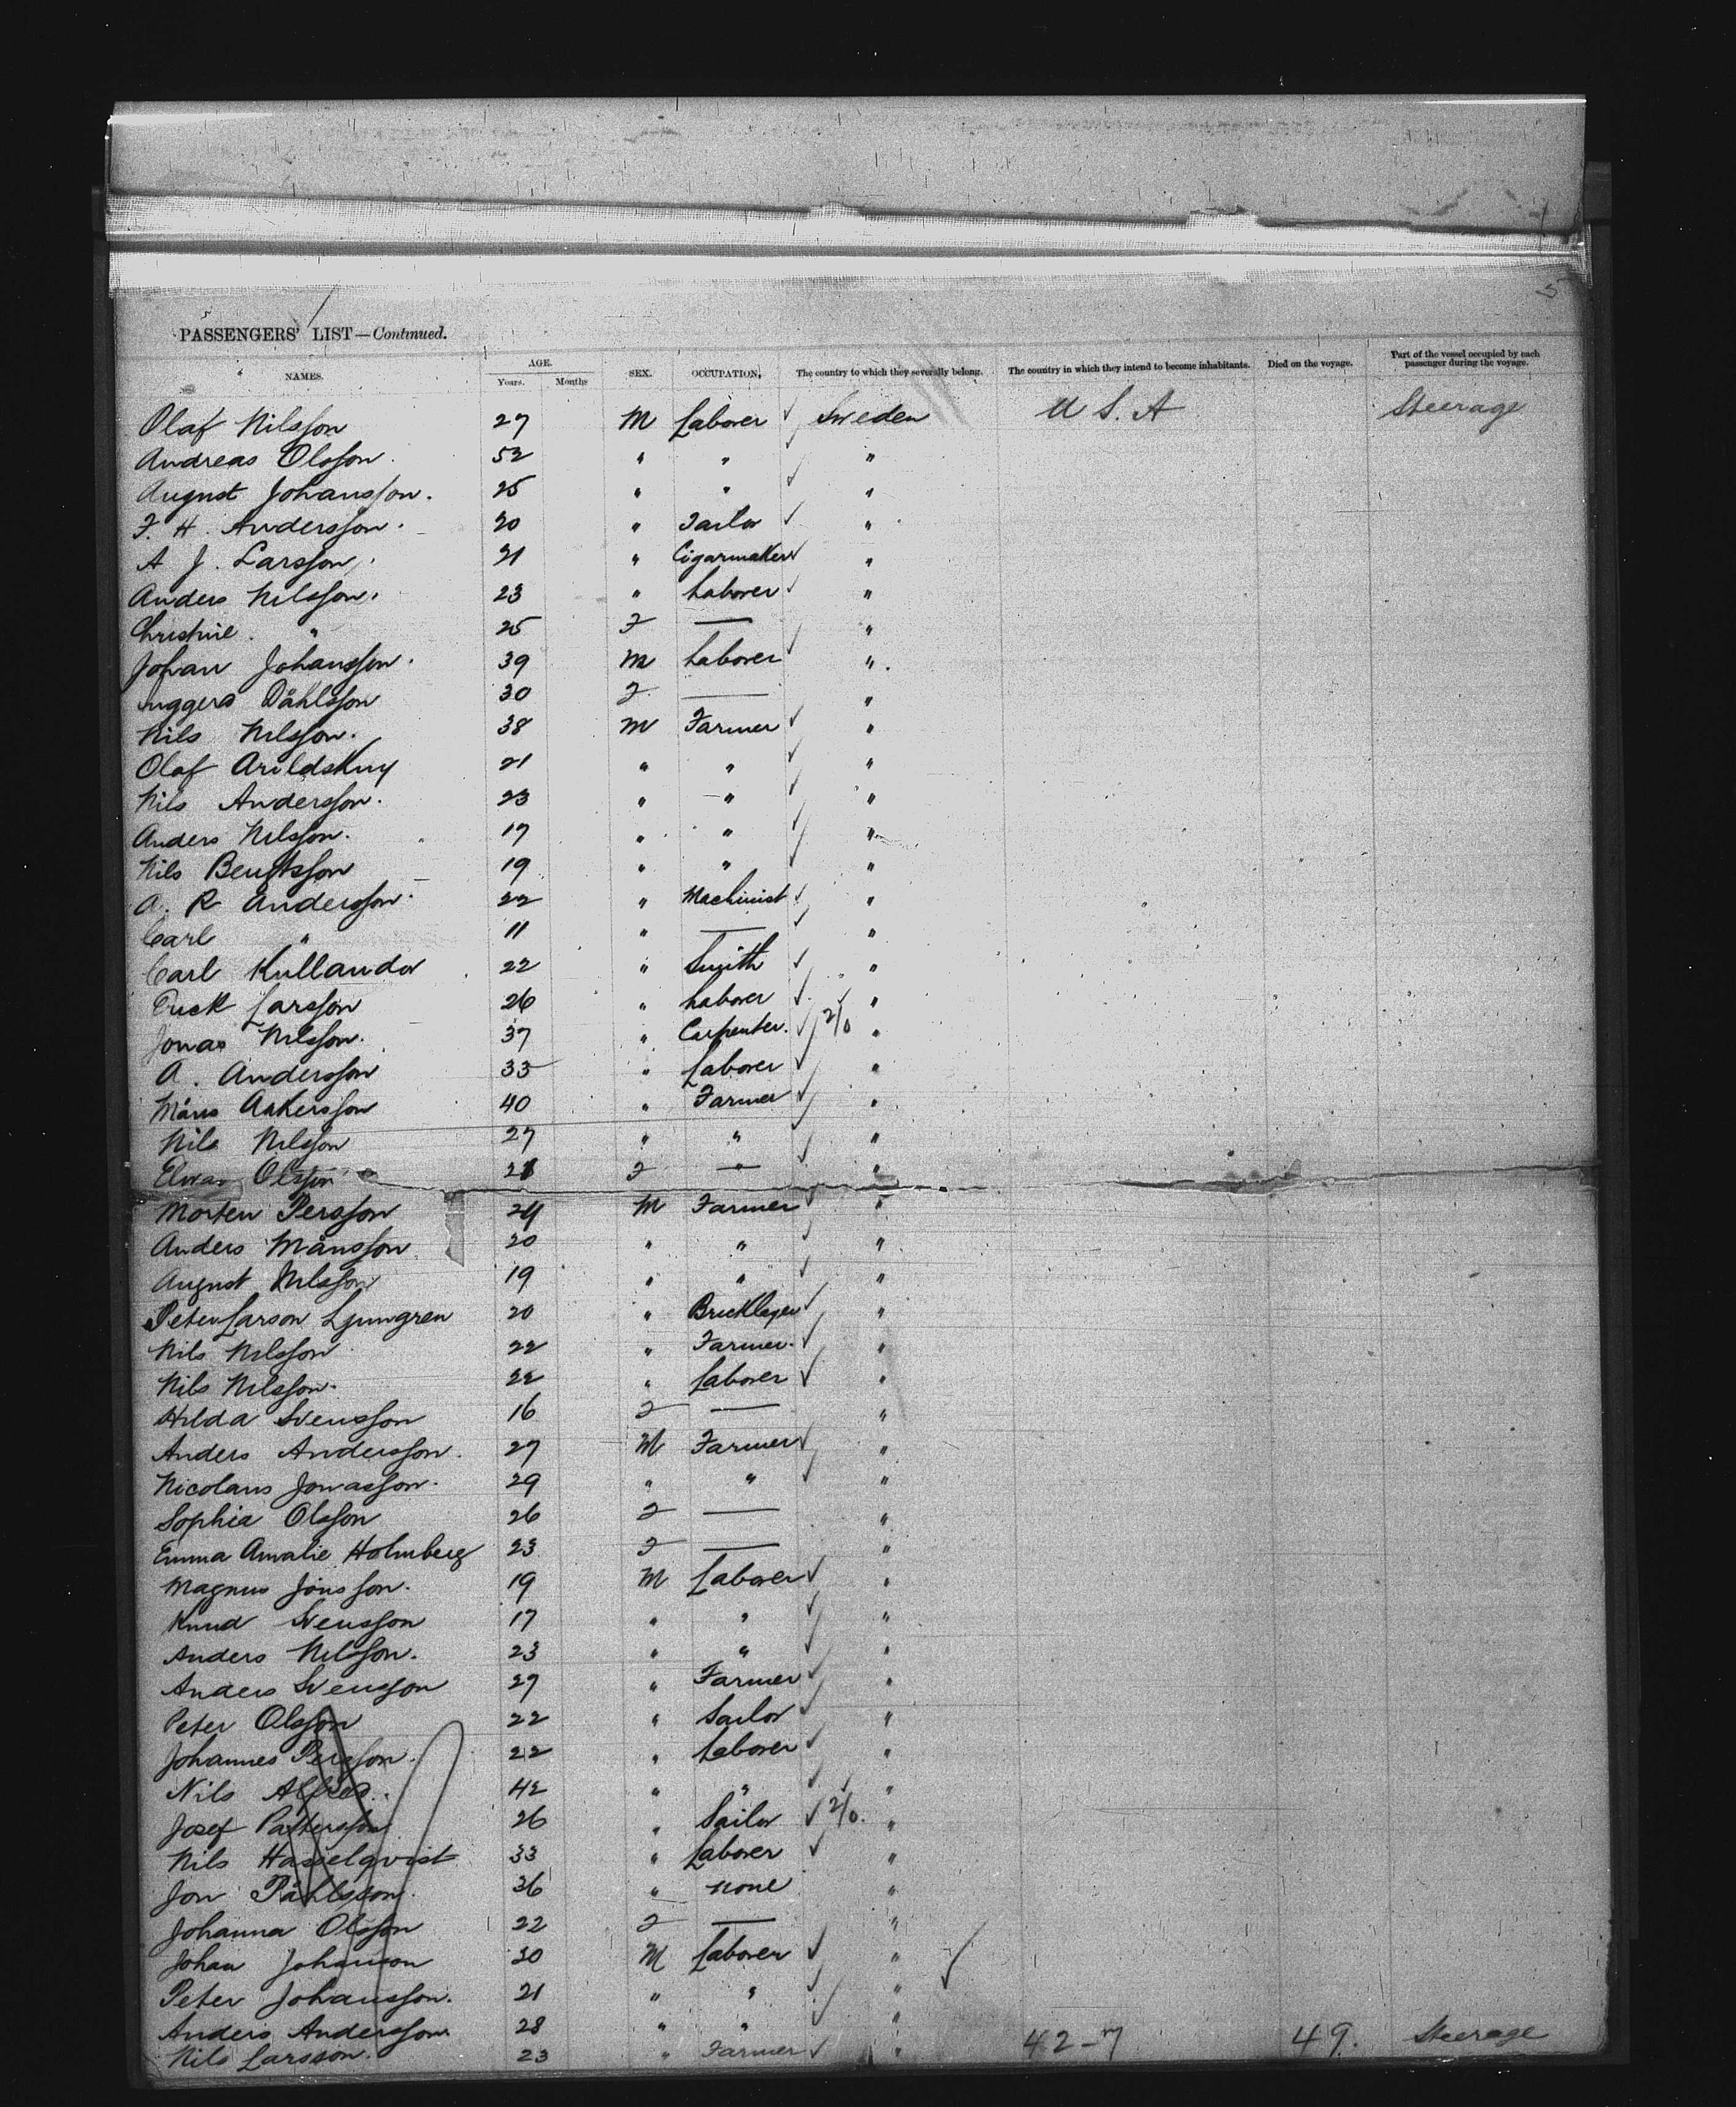 5
PASSENGERS' LIST—Continued.
NAMES. AGE. Years. Months SEX. OCCUPATION, The country to which they severally belong. The country in which they intend to become inhabitants. Died on the voyage. Part of the vessel occupied by each passenger during the voyage.
Olaf Nilsson 27 M Laborer ✓ Sweden U S. A Steerage
Andreas Olsson. 52 " " "
August Johansson. 25 " " ✓ "
F. H. Andersson. 20 " Tailor ✓ "
A J. Larsson. 21 " Cigarmaker ✓ "
Anders Nilsson. 23 " Laborer ✓ "
Christine " 25 F — "
Johan Johansson. 39 M Laborer ✓ "
Dåhlsson 30 F — "
Nils Nilsson. 38 M Farmer ✓ "
Olaf 21 " " ✓ "
Nils Andersson. 23 " " ✓ "
Anders Nilsson. 17 " " ✓ "
Nils Bengtsson 19 " " ✓ "
A. R Andersson. 22 " Machinist ✓ "
Carl " 11 " — ✓ "
Carl Kullander 22 " Smith ✓ "
Erick Larsson 26 " Laborer ✓ "
Jonas Nilsson. 37 " Carpenter. ✓ 2/0 "
A. Andersson 33 " Laborer ✓ "
Måns Aakersson 40 " Farmer ✓ "
Nils Nilsson 27 " " ✓ "
Olsson F — "
Morten Persson 24 M Farmer ✓ "
Anders Månsson 20 " " ✓ "
August Nilsson 19 " " ✓ "
Peter Larson Ljungren 20 " Bricklayer ✓ "
Nils Nilsson 22 " Farmer. ✓ "
Nils Nilsson. 22 " Laborer ✓ "
Hilda Svensson 16 F — "
Anders Andersson. 27 M Farmer ✓ "
Nicolaus Jonasson. 29 " " ✓ "
Sophia Olsson 26 F — "
Emma Amalie Holmberg 23 F — "
Magnus Jönsson. 19 M Laborer ✓ "
Knud Svensson 17 " " ✓ "
Anders Nilsson. 23 " " ✓ "
Anders Svensson 27 " Farmer ✓ "
Peter Olsson 22 " Sailor ✓ "
Johannes Persson. 22 " Laborer ✓ "
Nils 42 " " ✓ "
Josef Pattersson 26 " Sailor ✓ 2/0. "
Nils Hasselqvist 33 " Laborer ✓ "
Jon Påhlsson. 36 " none "
Johanna Olsson 22 F — "
Johan Johanson 30 M Laborer ✓ " ✓
Peter Johansson. 21 " " ✓ "
Anders Andersson 28 " " ✓ "
Nils Larsson. 23 " Farmer ✓ " 42-7 49. Steerage